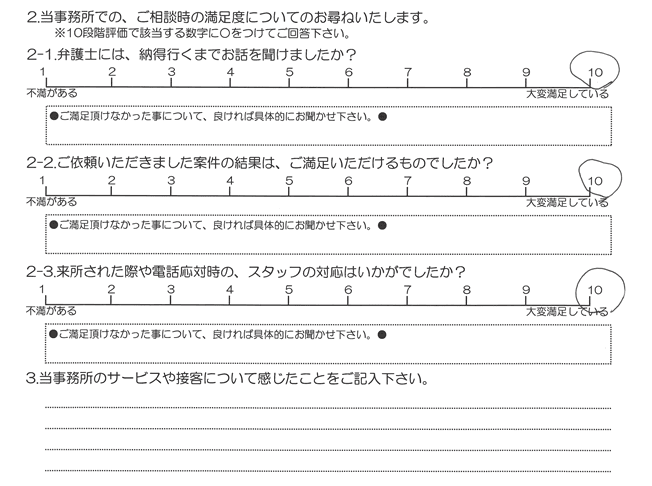 2.当事務所での、ご相談時の満足度についてのお尋ねいたします。
※10段階評価で該当する数字に〇をつけてご回答下さい。
2-1.弁護士には、納得行くまでお話を聞けましたか？
1 2 3 4 5 6 7 8 9 10
不満がある 大変満足している
●ご満足頂けなかった事について、良ければ具体的にお聞かせ下さい。●
2-2.ご依頼いただきました案件の結果は、ご満足いただけるものでしたか？
1 2 3 4 5 6 7 8 9 10
不満がある 大変満足している
●ご満足頂けなかった事について、良ければ具体的にお聞かせ下さい。●
2-3.来所された際や電話応対時の、スタッフの対応はいかがでしたか？
1 2 3 4 5 6 7 8 9 10
不満がある 大変満足している
●ご満足頂けなかった事について、良ければ具体的にお聞かせ下さい。●
3.当事務所のサービスや接客について感じたことをご記入下さい。